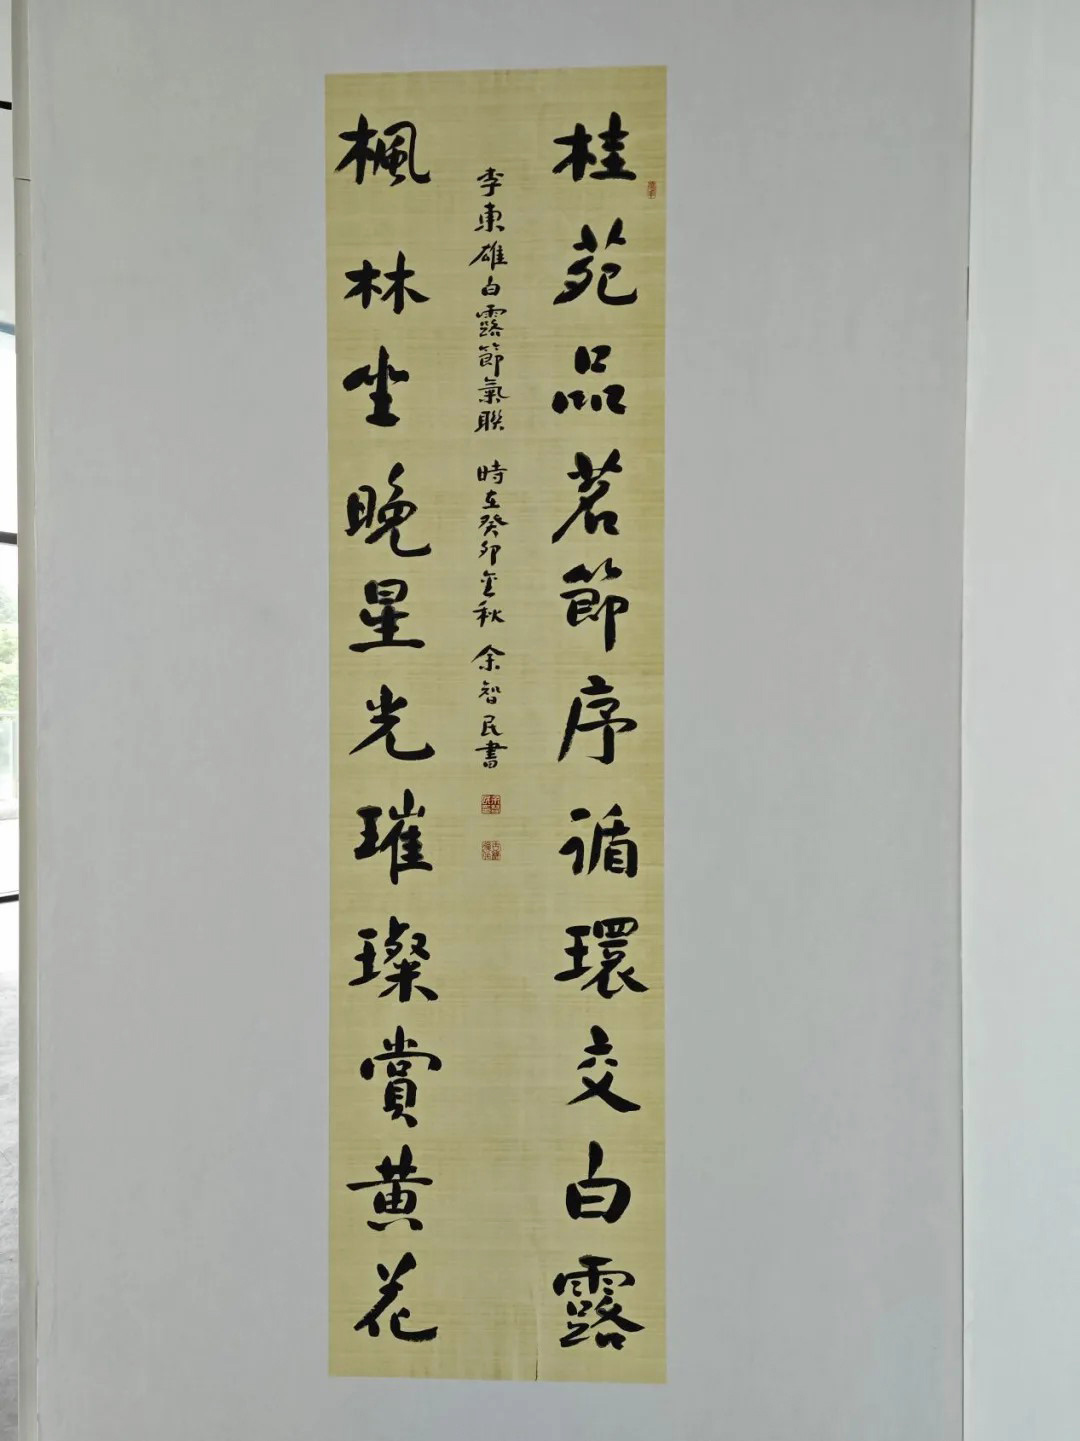 桂苑品茗節序循環交白露
李東雄白露節氣聯 時在癸卯金秋 余智民書
楓林坐晚星光璀璨賞黄花